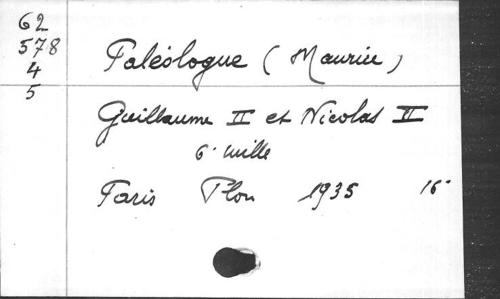 62
578
4
5
Paléologue (Maurice)
Guillaume II et Nicolas II
6e mille
Paris Plon 1935 16°